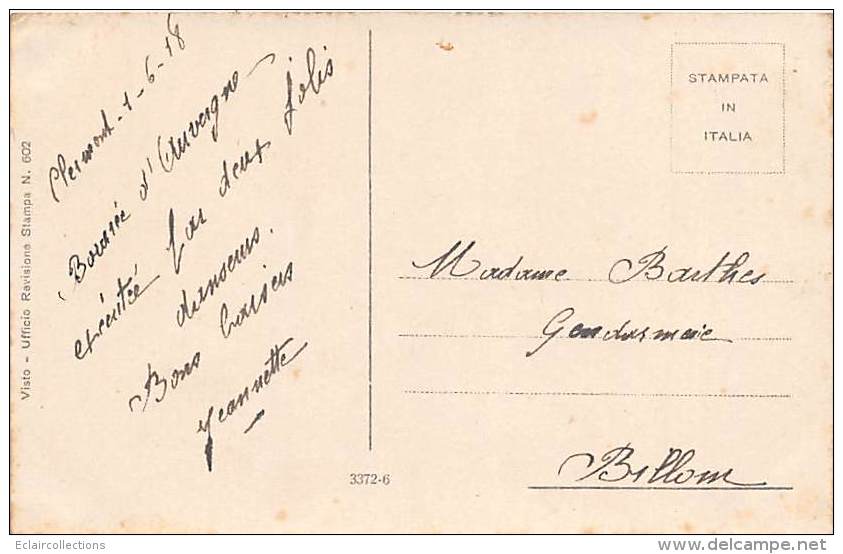 Clermont-1-6-18
Bourrée d'Auvergne
exécutée par deux jolis
danseurs.
Bons baisers
Jeannette
Visto - Ufficio Revisione Stampa N. 602
STAMPATA
IN
ITALIA
Madame Barthes
Gendarmerie
Billom
3372-6
Eclaircollections
www.delcampe.net